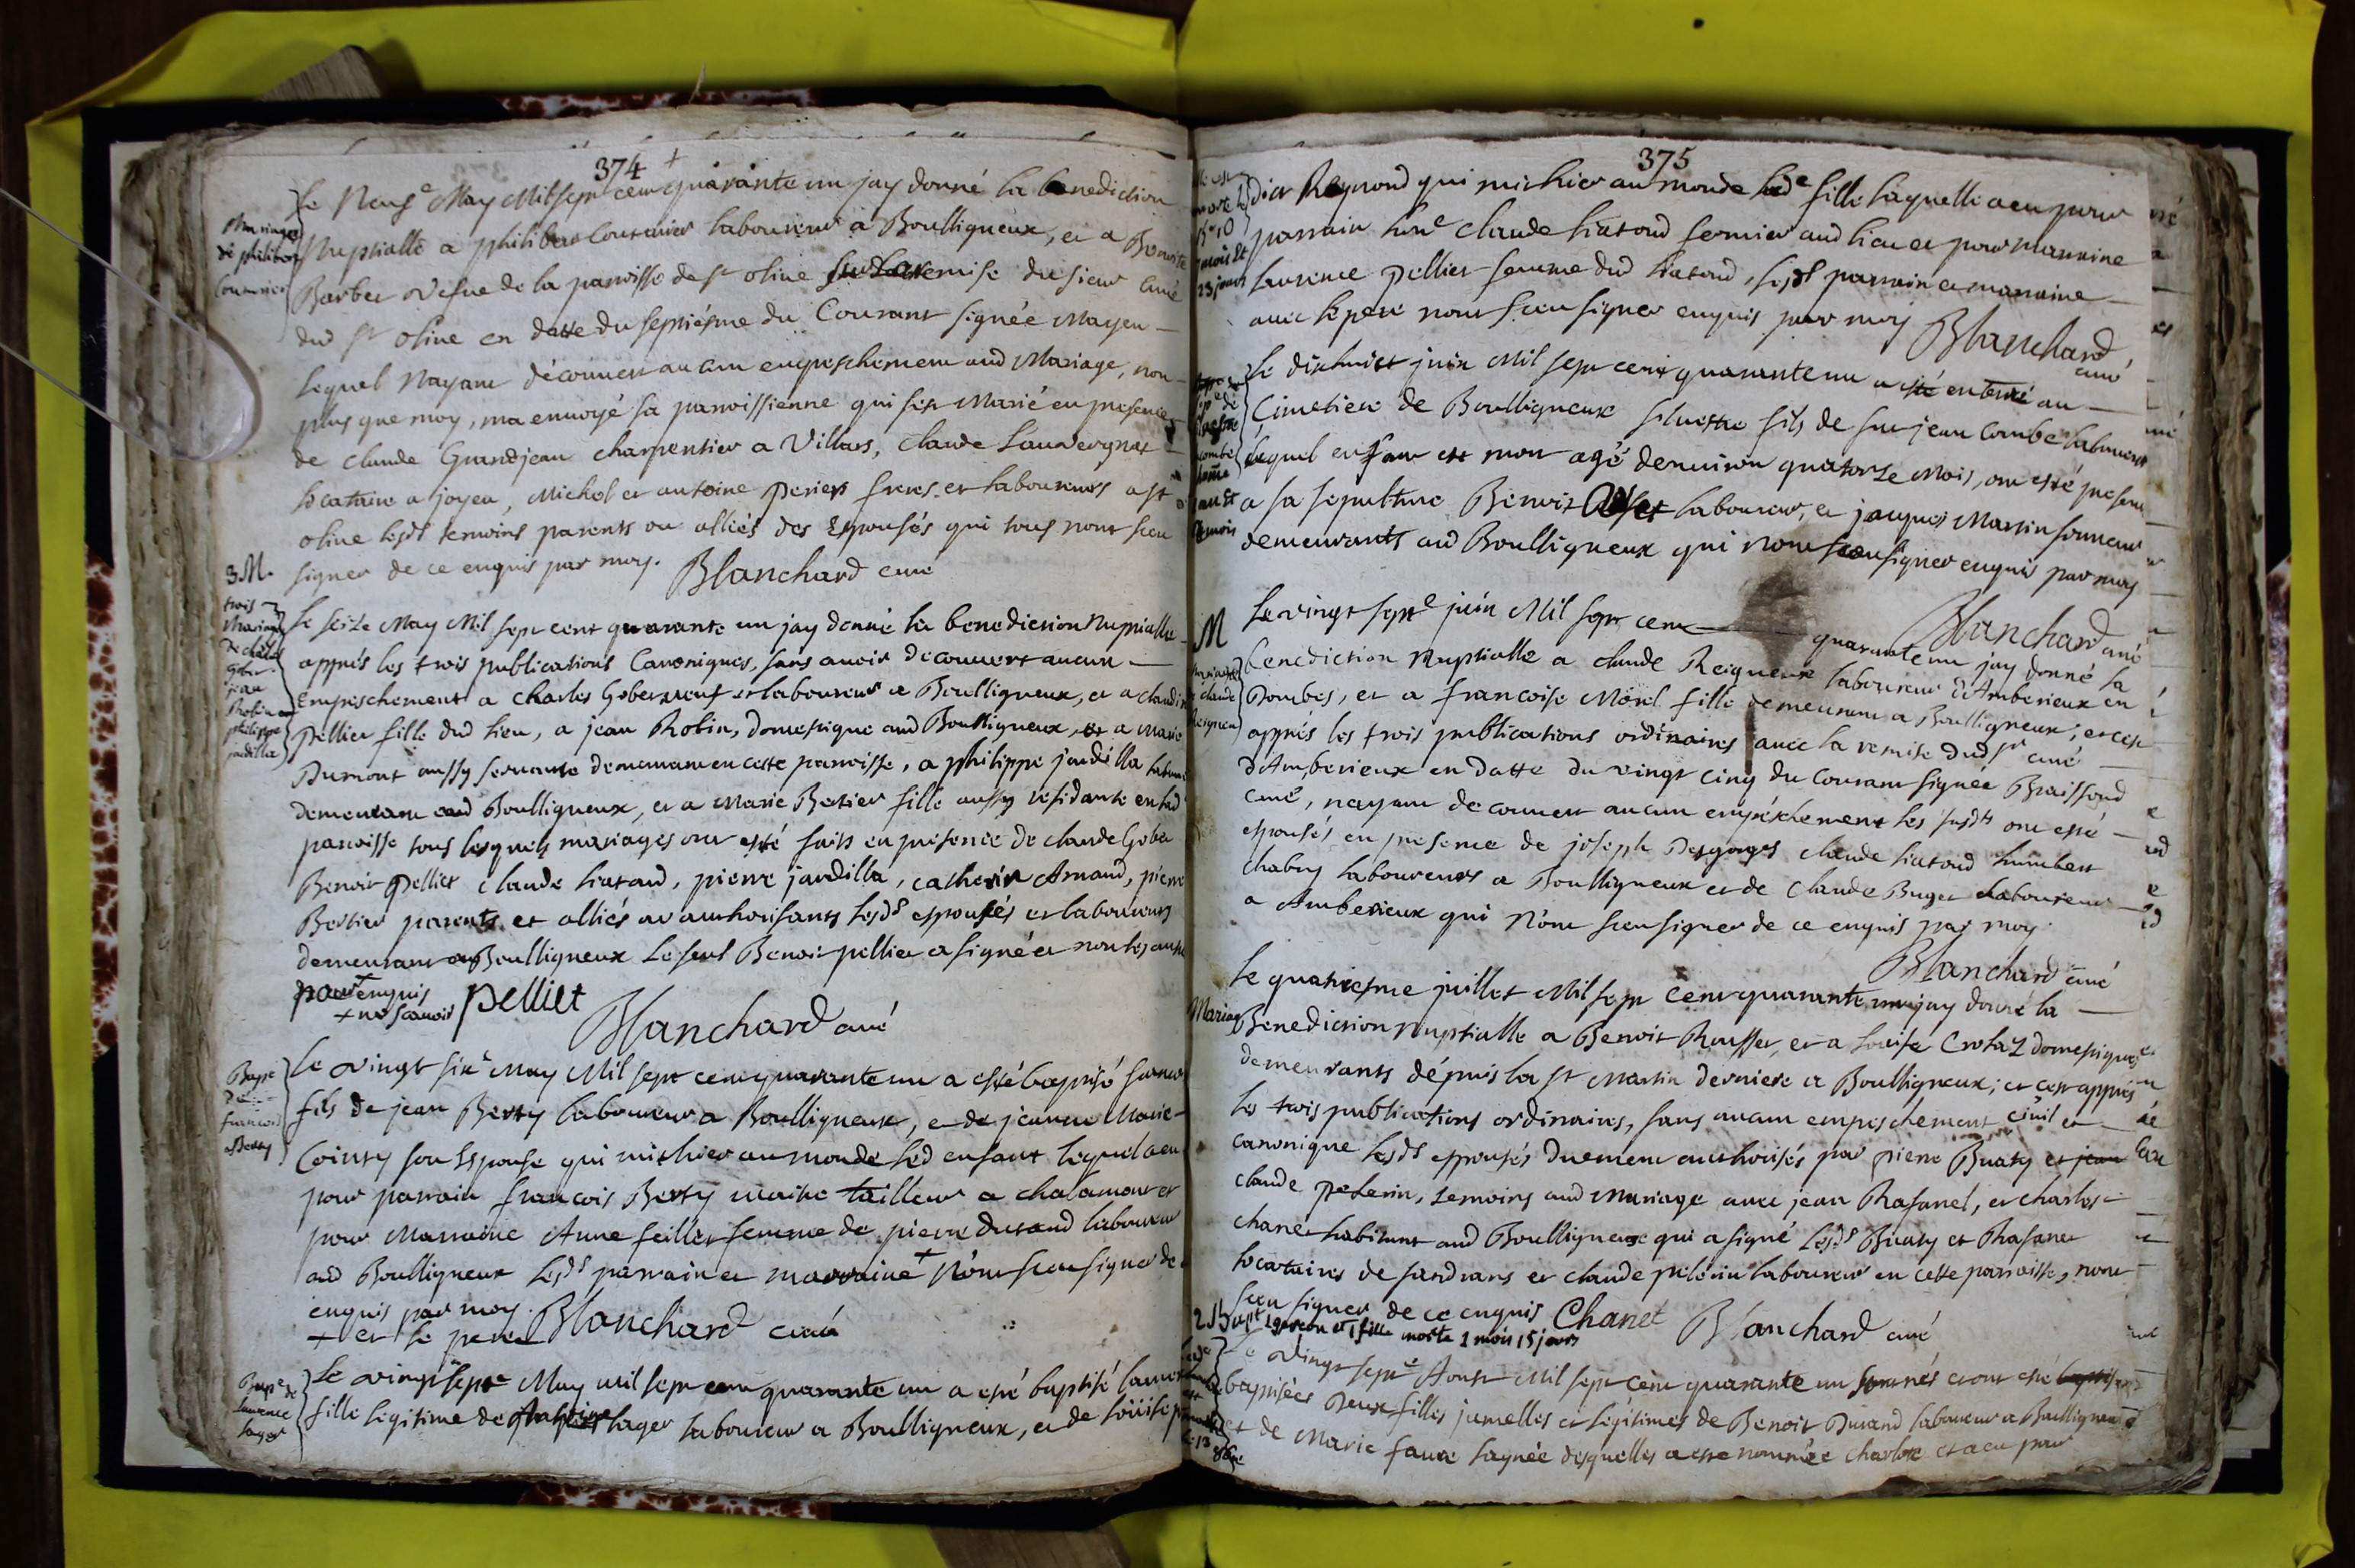 374
Le Neufe May Mil sept cent quarante un jay donné la benediction
Nuptialle a philibert Couturier laboureur a Boulligneux, et a Benoite
Barbet vefue de la paroisse de st oliue sur la remise du sieur Curé
dud st oliue en datte du septiésme du Courant signée Mayeu
lequel Nayant découuert aucun empeschement aud Mariage, non
plus que moy, ma enuoyé sa paroissienne qui sest Marié en presence
de claude Grandjean charpentier a Villars, claude Lauvergnat
locataire a joyeu, Michel et antoine Perier freres et laboureurs a st
oliue lesds temoins parents ou alliés des Espousés qui tous nont sceu
signer de ce enquis par moy. Blanchard curé
Mariage
de philibert
Couturier
3 M.
trois
Mariages
De charles
Gober
jean
Robin et
philippe
jardilla
Le seize May Mil sept cent quarante un jay donné la benediction Nuptialle
apprés les trois publications Canoniques, sans auoir decouuert aucun
Empeschement a charles Goberneuf et laboureur a Boulligneux, et a claudine
Pellier fille dud lieu, a jean Robin, domestique aud Boulligneux, et a marie
Dumont aussy seruante demeurant en cette paroisse, a philippe jardilla
demeurant aud Boulligneux, et a Marie Bertier fille aussy residante en lad
paroisse tous lesquels mariages ont esté faits en presence de claude Gober
Benoit Pelliet claude liatoud, pierre jardilla, catherin Arnaud, pierre
Bertier parents et alliés authorisants lesds espousés et laboureurs
demeurant a Boulligneux Le seul Benoit pellier a signé et non les autres
pour enquis pelliet
+ ne scauoir
Blanchard curé
Bapte
de
francois
Berty
Le vingt sixe May Mil sept cent quarante un a esté baptisé francois
fils de jean Berty laboureur a Boulligneux, et de jeanne Marie
Cointy son Espouse qui mit hier au monde led enfant lequel a eu
pour parrain francois Berty maitre tailleur a chalamont et
pour Marraine Anne feillet femme de pierre durand laboureur
aud Boulligneux Lesds parrain et marraine + n'ont sceu signer de
enquis par moy. Blanchard curé
+ et le pere
Bapte de
laurence
lager
Le vingt septe May mil sept cent quarante un a esté baptisé laurence
fille legitime de lager laboureur a Boulligneux, et de loüise
375
dict Reynond qui mit hier au monde lade fille laquelle a eu pour
parrain hone claude liatoud fermier aud lieu et pour marraine
laurence pellier femme dud liatoud, lesds parrain et marraine
auec le pere nont sceu signer enquis par moy Blanchard
curé
Le dixhuict juin Mil sept cent quarante un a esté enterré au
Cimetiere de Boulligneux siluestre fils de feu jean Combe laboureur
lequel enfant est mort agé denuiron quatorze Mois, ont esté presents
a sa sepulture Benoit laboureur, et jacques Martin sonneur
demeurants aud Boulligneux qui nont sceu signer enquis par moy
Blanchard curé
M
mariage
de claude
Reigneux
Le vingt septe juin Mil sept cent quarante un jay donné la
benediction nuptialle a claude Reigneux laboureur d'Amberieux en
Dombes, et a francoise Morel fille demeurant a Boulligneux; et cest
apprés les trois publications ordinaires auec la remise dud sr curé
d'Amberieux en datte du vingt cinq du Courant signée Braissoud
curé, nayant decouuert aucun empéschement les susdts ont esté
espousés en presence de joseph Desgoges claude liatoud humbert
chabry laboureurs a Boulligneux et de Claude Buget laboureur
a Amberieux qui N'ont sceu signer de ce enquis par moy
Blanchard curé
Mariag
Le quatriesme juillet Mil sept Cent quarante un jay donné la
Benediction nuptialle a Benoit Rousset, et a loüise Crotaz domestiques
demeurants dépuis la st Martin derniere a Boulligneux; et cest apprés
les trois publications ordinaires, sans aucun empeschement ciuil et
canonique lesds espousés duement authorisés par pierre Buaty et jean
claude Pelerin, temoins aud Mariage auec jean Rasanel, et charles
chanet habitant aud Boulligneux qui a signé Lesds Buaty et Rasanet
locataires de sandrans et claude pelérin laboureur en cette paroisse, nont
sceu signer de ce enquis Chanet Blanchard curé
2 Bapt 1 garcon et 1 fille morte 1 mois 15 jours
Le vingt septe Aoust Mil sept cent quarante un sont nés et ont esté
baptisées Deux filles jumelles et legitimes de Benoit Durand laboureur a Boulligneux
et de Marie faure laynée desquelles a esté nommée charlote et a eu pour